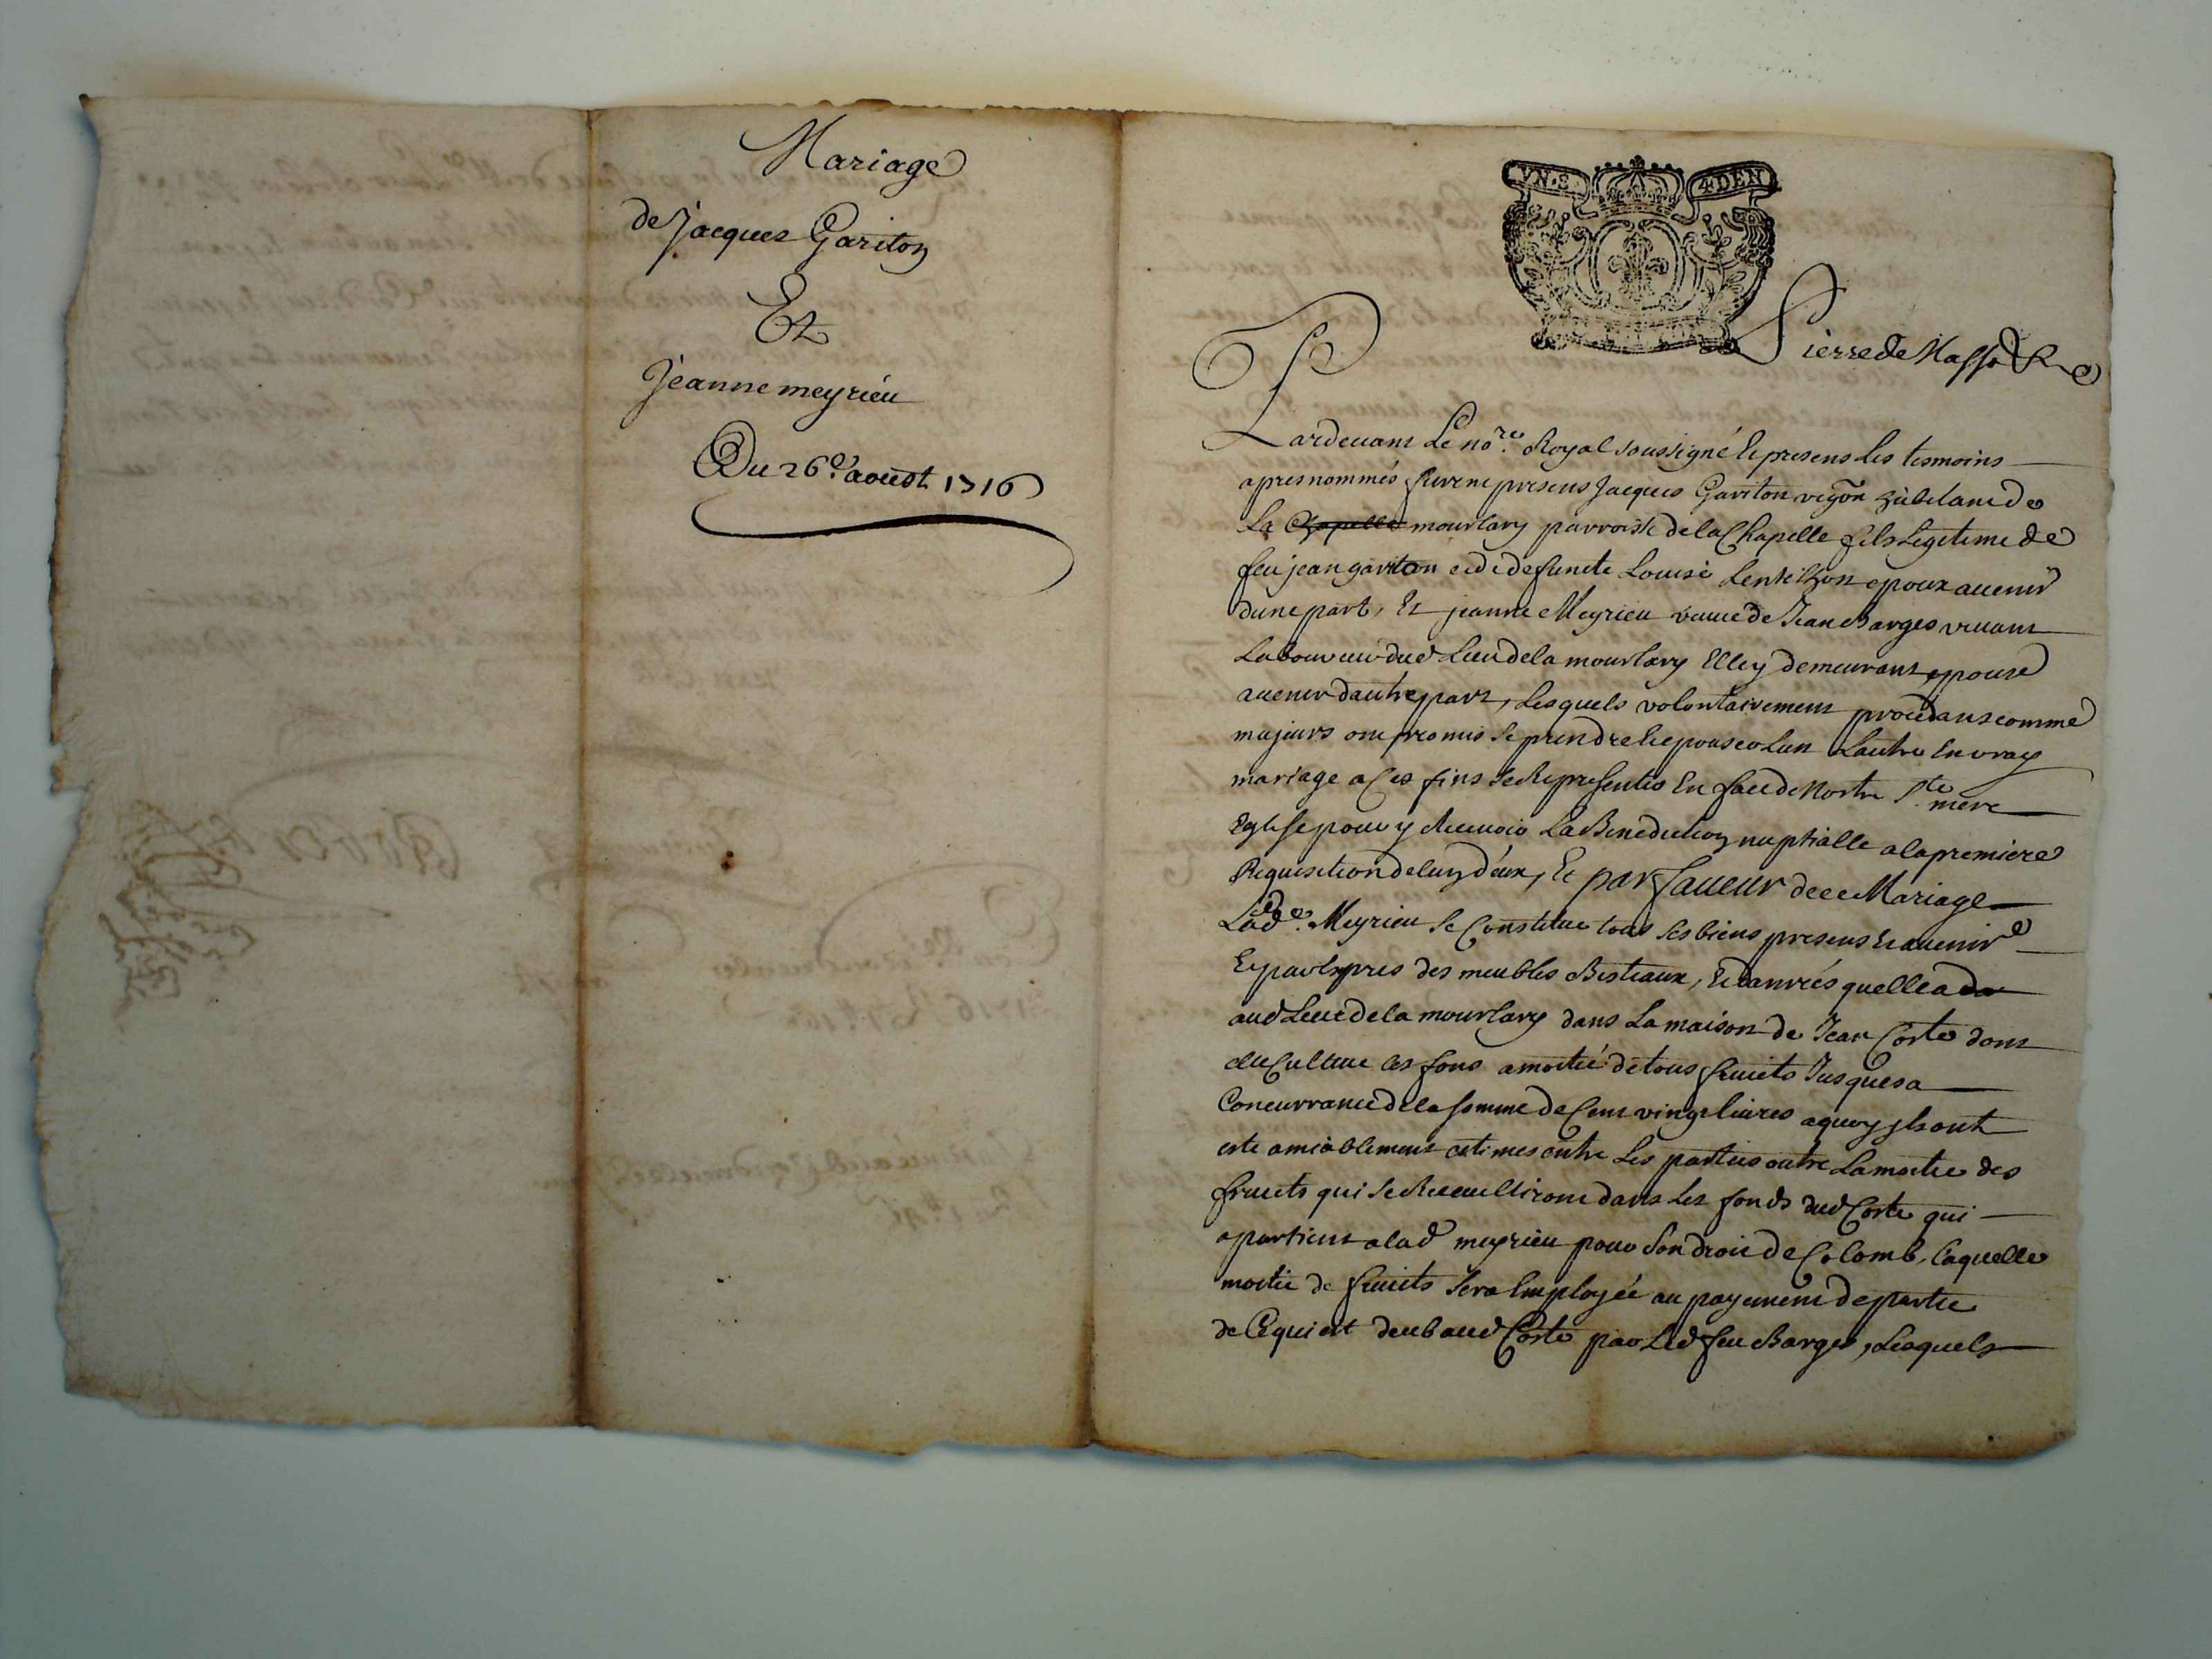 Mariage
de Jacques Gariton
Et
Jeanne meyrieu
Du 26e aoust 1716
VN.S. 4DEN
Pierre de Masso
Pardeuant Le nore. Royal soussigné Et presens Les tesmoins
apres nommés furent presens Jacques Gariton vigon habitant de
La Chapelle mourlary parroisse de la Chapelle fils Legitime de
feu jean gariton et de defuncte Louise Lentilhon epoux auenir
dune part, Et jeanne Meyrieu veuue de Jean Barges viuant
Laboureur dud Lieu de la mourlary Elle y demeurant epouse
auenir dautre part, Lesquels volontairement procedans comme
majeurs ont promis se prendre Et epouser Lun Lautre En vray
mariage a Ces fins se Representer En face de Nostre Ste mere
Eglise pour y Receuoir La Benediction nuptialle a la premiere
Requisition de luy deux, Et par faueur de ce Mariage
Lade. Meyrieu se Constitue tous ses biens presens Et auenir
Et par Expres des meubles Bestiaux, Et danrées quelle a
aud Lieu de la mourlary dans La maison de Jean Coste dont
Cultiue les fons a moitié de tous fruits Jusques a
Concurrance de la somme de Cent vingt liures a quoy ils ont
esté amiablement estimes entre Les parties outre La moitie des
fruits qui se Recueilliront dans Les fonds dud Coste qui
apartient a lad meyrieu pour son droit de Colomb, Laquelle
moitie de fruits sera Employée au payement de partie
de Ce qui est deub aud Coste par Led feu Barges, Lesquels